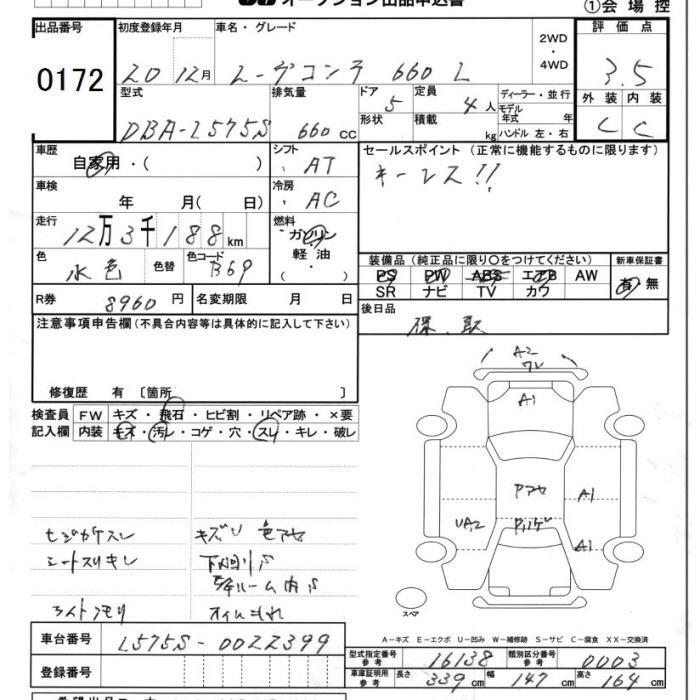 オークション出品申込書
①会場控
出品番号 0172
初度登録年月 20 12月
車名・グレード ムーヴコンテ 660 L
2WD・4WD
評価点 3.5
型式 DBA-L575S
排気量 660 cc
ドア形状 5
定員 4人
積載 kg
ディーラー・並行
モデル年式 年
ハンドル 左・右
外装 C
内装 C
車歴 自家用・( )
シフト AT
セールスポイント (正常に機能するものに限ります)
キーレス!!
車検 年 月(日)
冷房 AC
走行 12万3千188km
燃料 ガソリン・軽油・( )
色 水色
色替
色コード B69
装備品 (純正品に限り○をつけてください)
新車保証書
PS PW ABS エアB AW
SR ナビ TV カワ
有・無
R券 8960円
名変期限 月 日
後日品
保、取
注意事項申告欄 (不具合内容等は具体的に記入して下さい)
修復歴 有 〔箇所 〕
検査員記入欄
FW キズ・飛石・ヒビ割・リペア跡・×要
内装 キズ・汚レ・コゲ・穴・スレ・キレ・破レ
A2
ワレ
A1
Pアセ
A1
UA2
A1
キズU 色アセ
シートスリキレ
下回りS
ルーム内S
ライトクモリ
オイルにじれ
スペア
A-キズ E-エクボ U-凹み W-補修跡 S-サビ C-腐食 XX-交換済
車台番号 L575S-0022399
型式指定番号 参考 16138
類別区分番号 参考 0003
登録番号
車庫証明用 参考 長さ 339cm 幅 147cm 高さ 164cm